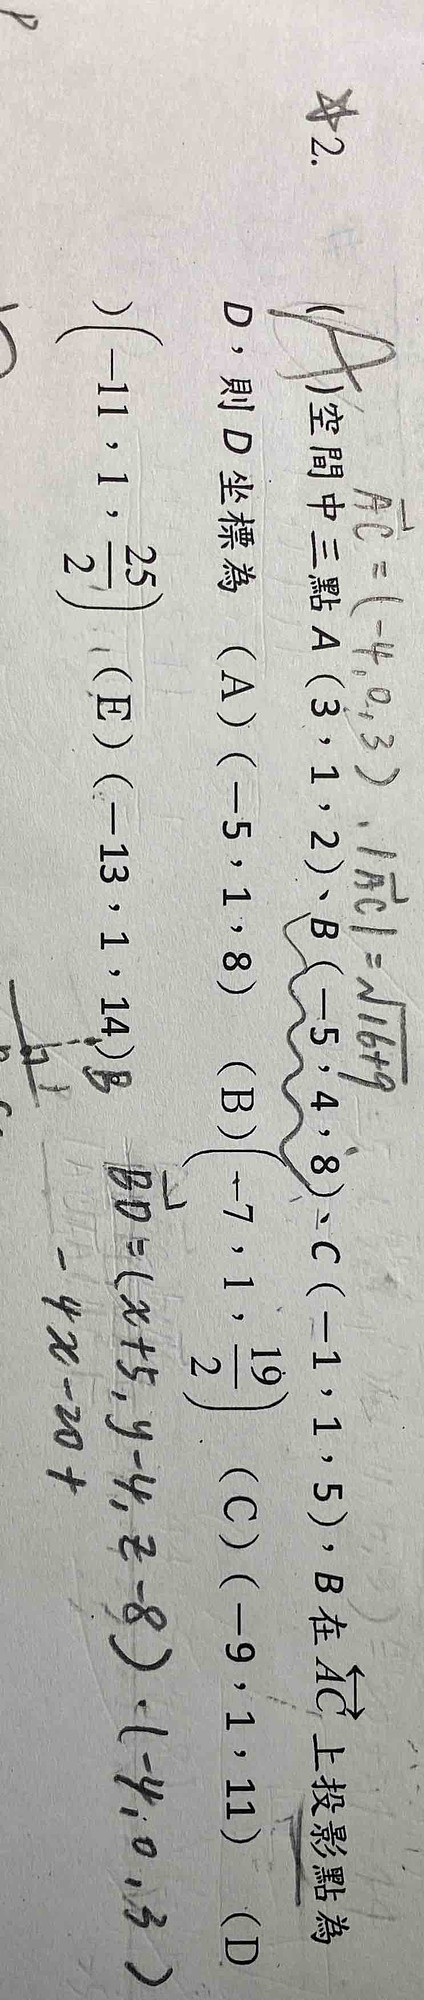 AC = (-4, 0, 3)、|AC| = √16+9
☆2. (A)空間中三點 A(3,1,2)、B(−5,4,8)、C(−1,1,5),B 在 AC 上投影點為
D,則 D 坐標為 (A)(−5,1,8) (B)(−7,1,19/2) (C)(−9,1,11) (D
)(−11,1,25/2) (E)(−13,1,14)
B
BD = (x+5, y-4, z-8)·(-4, 0, 3)
-4x-20+